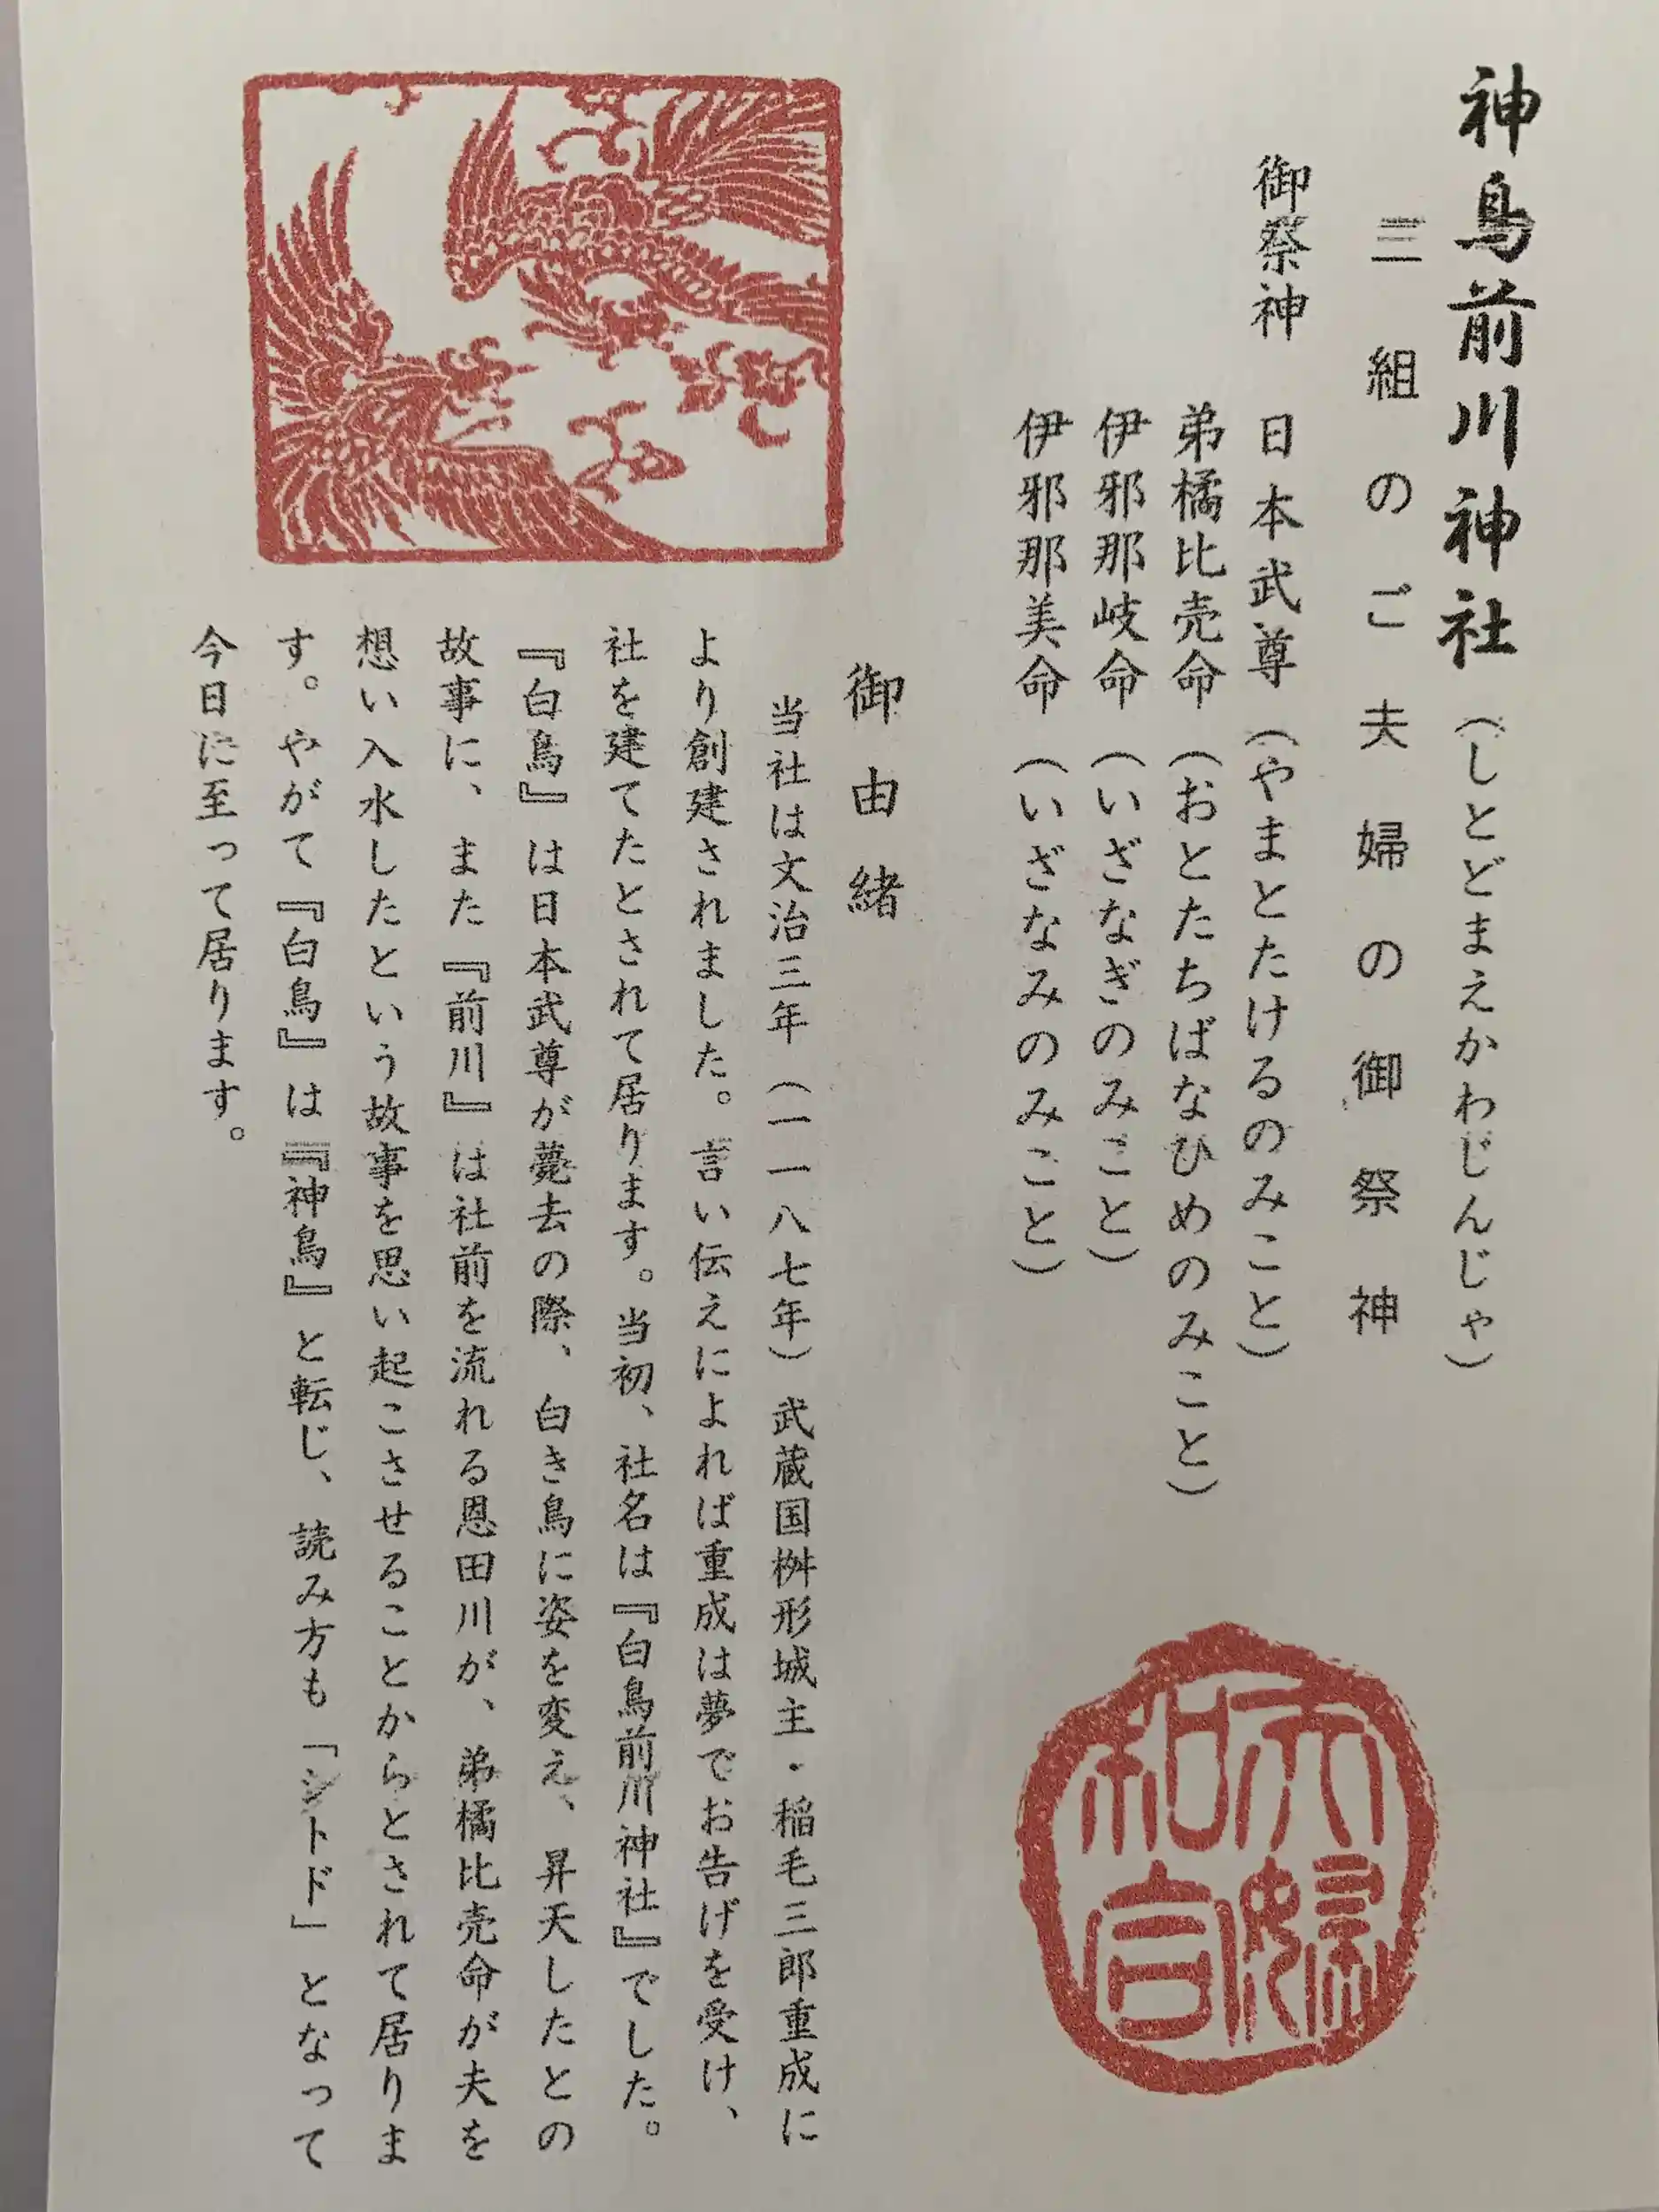 神鳥前川神社（しとどまえかわじんじゃ）
三組のご夫婦の御祭神
御祭神　日本武尊（やまとたけるのみこと）
弟橘比売命（おとたちばなひめのみこと）
伊邪那岐命（いざなぎのみこと）
伊邪那美命（いざなみのみこと）
夫婦和合
御由緒
当社は文治三年（一一八七年）武蔵国桝形城主・稲毛三郎重成に
より創建されました。言い伝えによれば重成は夢でお告げを受け、
社を建てたとされて居ります。当初、社名は『白鳥前川神社』でした。
『白鳥』は日本武尊が薨去の際、白き鳥に姿を変え、昇天したとの
故事に、また『前川』は社前を流れる恩田川が、弟橘比売命が夫を
想い入水したという故事を思い起こさせることからとされて居りま
す。やがて『白鳥』は『神鳥』と転じ、読み方も「シトド」となって
今日に至って居ります。